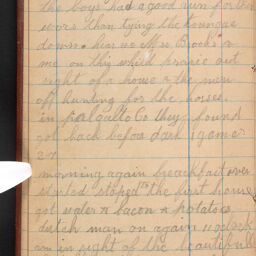 the boys had a good run for their
wors than tying the tounge
down. him us Mr. Brooks &
me on this wild prarie out
sight of a house & the men
off hunting for the horses.
in Co they found
got back before dark I gomes
27
morning again breackfast over
started stoped to the first house
got water & bacon & potatoes
dutch man on again 11 oclock
in sight of the beautiful